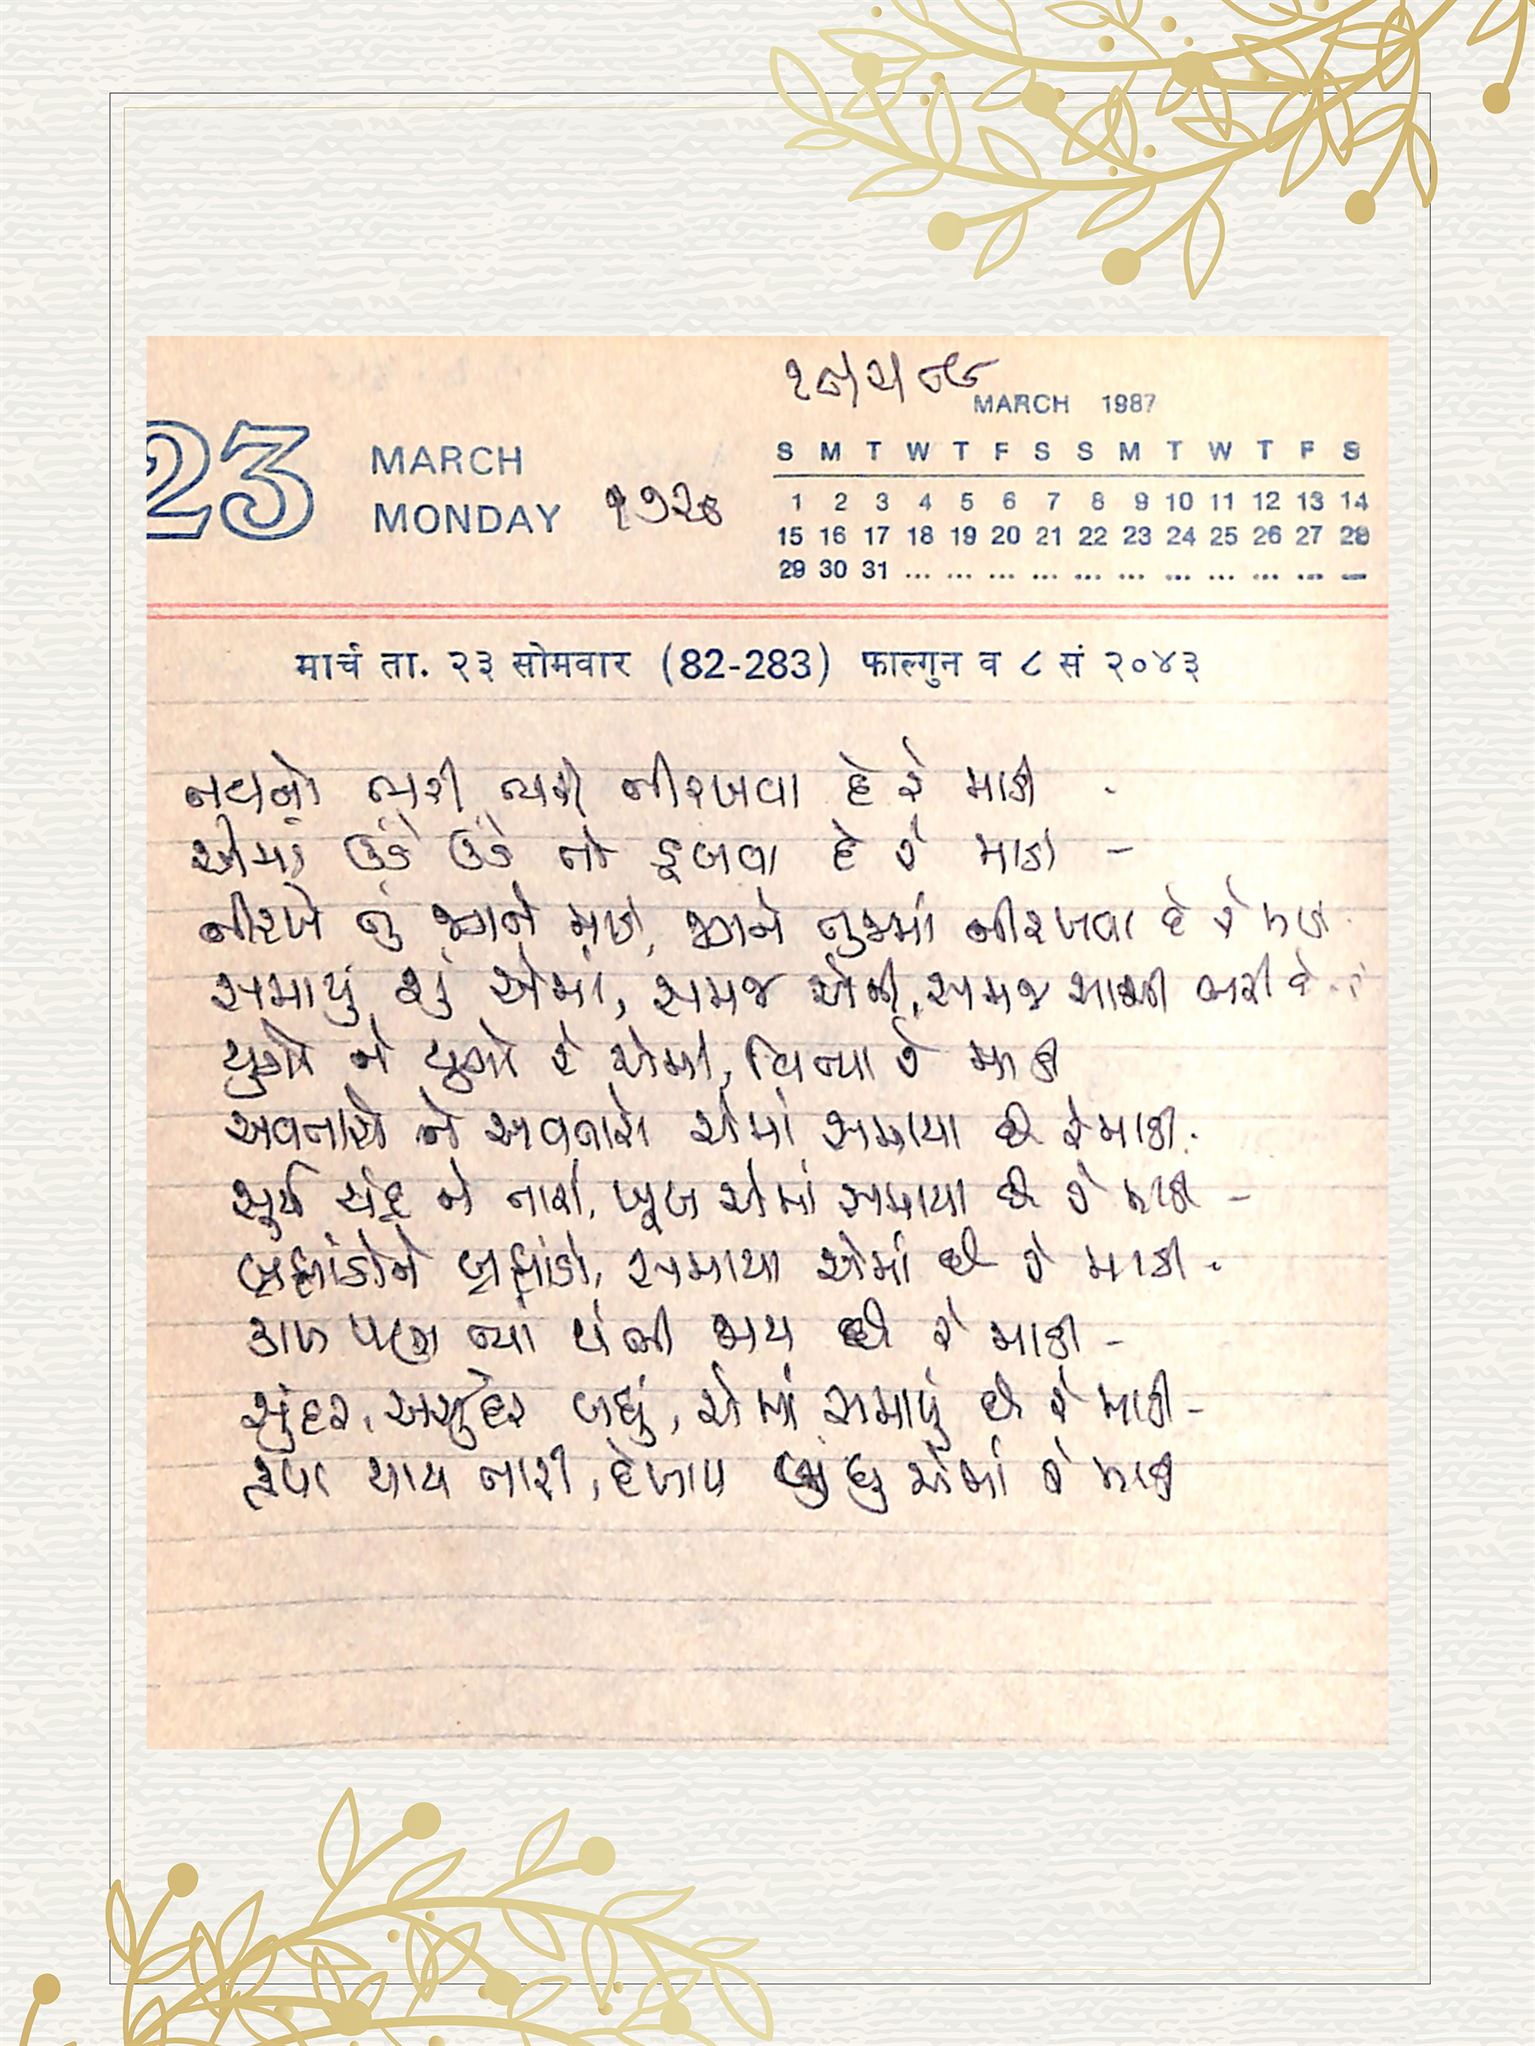 MARCH 1987
23 MARCH
MONDAY
S M T W T F S S M T W T F S
1 2 3 4 5 6 7 8 9 10 11 12 13 14
15 16 17 18 19 20 21 22 23 24 25 26 27 28
29 30 31 ... ... ... ... ... ... ... ... ... ... ...
मार्च ता. २३ सोमवार (82-283) फाल्गुन व ८ सं २०४३
નયનો ભરી ભરી નીરખવા દે રે માડી -
એમાં ઉંડે ઉંડે તો ડૂબવા દે રે માડી -
નીરખે તું મને, મને તુજમાં નીરખવા દે રે માડી
સમાયું શું એમાં, સમજ એની, સમજ મારી દે
યુગો ને યુગો રે એમાં, વિત્યા રે માડી
અવતારો ને અવતારો એમાં સમાયા છે રે માડી.
સૂર્ય ચંદ્ર ને તારા, ખૂબ એમાં સમાયા છે રે માડી -
બ્રહ્માંડોને બ્રહ્માંડો, સમાયા એમાં છે રે માડી -
કાળ પણ ત્યાં થંભી જાય છે રે માડી -
સુંદર, અસુંદર બધું, એમાં સમાયું છે રે માડી -
કૃપા થાય તારી, દેખાય બધું એમાં રે માડી